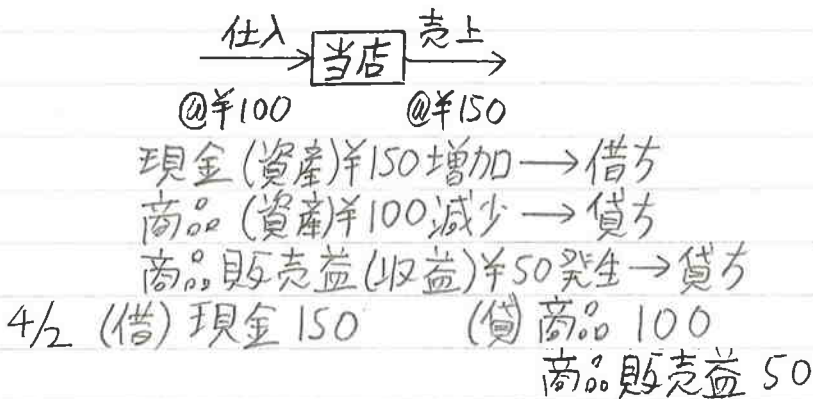 仕入 当店 売上
@¥100 @¥150
現金(資産)¥150増加→借方
商品(資産)¥100減少→貸方
商品販売益(収益)¥50発生→貸方
4/2 (借)現金150 (貸)商品 100
商品販売益 50